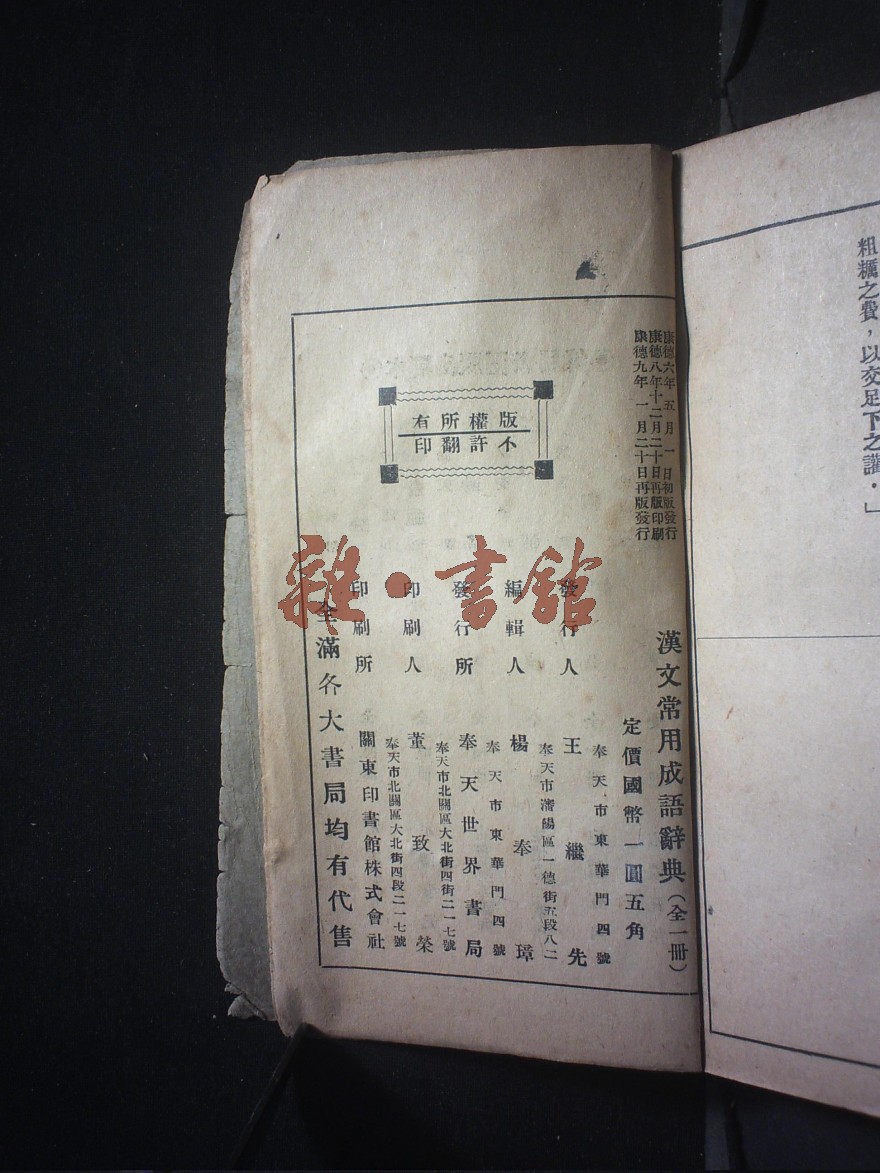 粗糲之費，以交足下之讙．」
康德六年五月一日初版發行
康德八年十二月二十日再版印刷
康德九年一月二十日再版發行
版權所有
不許翻印
漢文常用成語辭典（全一冊）
定價國幣一圓五角
發行人 王繼先
奉天市東華門四號
編輯人 楊奉璋
奉天市瀋陽區一德街五段八二
發行所 奉天世界書局
奉天市東華門四號
印刷人 董致榮
奉天市北關區大北街四街二一七號
印刷所 關東印書館株式會社
奉天市北關區大北街四段二一七號
全滿各大書局均有代售
雜·書館